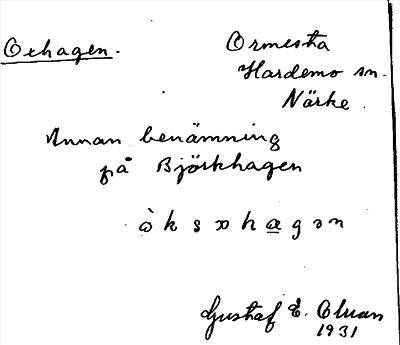 Oxhagen.
Ormesta
Hardemo sn.
Närke.
Annan benämning
på Björkhagen
Gustaf E.
1931